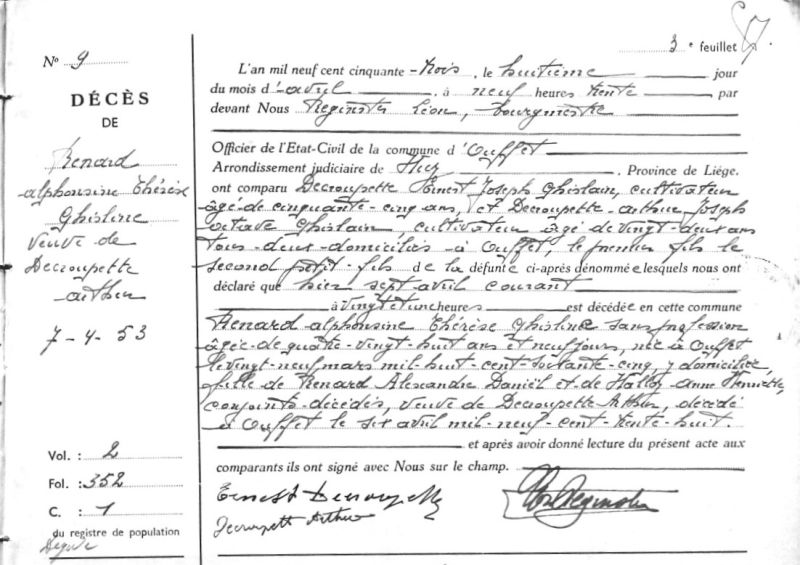 3e feuillet
N° 9
DÉCÈS
DE
Renard
alphonsine Thérèse
Ghisline
veuve de
Decroupette
arthur
7-4-53
Vol. : 2
Fol. : 352
C. : 1
du registre de population
L'an mil neuf cent cinquante-trois, le huitième jour
du mois d'avril, à neuf heures trente par
devant Nous Reginster Léon, bourgmestre
Officier de l'Etat-Civil de la commune d'Ouffet
Arrondissement judiciaire de Huy. Province de Liége.
ont comparu Decroupette Ernest Joseph Ghislain, cultivateur
âgé de cinquante-cinq ans, et Decroupette arthur Joseph
octave Ghislain, cultivateur âgé de vingt-deux ans
tous deux domiciliés à Ouffet, le premier fils le
second petit-fils de la défunte ci-après dénommée lesquels nous ont
déclaré que hier sept avril courant
à vingt et une heures est décédée en cette commune
Renard alphonsine Thérèse Ghisline sans profession
âgée de quatre-vingt-huit ans et neuf jours, née à Ouffet
le vingt-neuf mars mil-huit-cent-soixante-cinq, y domiciliée,
fille de Renard Alexandre Daniel et de Halloy anne Henriette,
conjoints décédés, veuve de Decroupette Arthur, décédé
à Ouffet le six avril mil-neuf-cent-trente-huit.
et après avoir donné lecture du présent acte aux
comparants ils ont signé avec Nous sur le champ.
Ernest Decroupette
Decroupett Arthur
Reginster